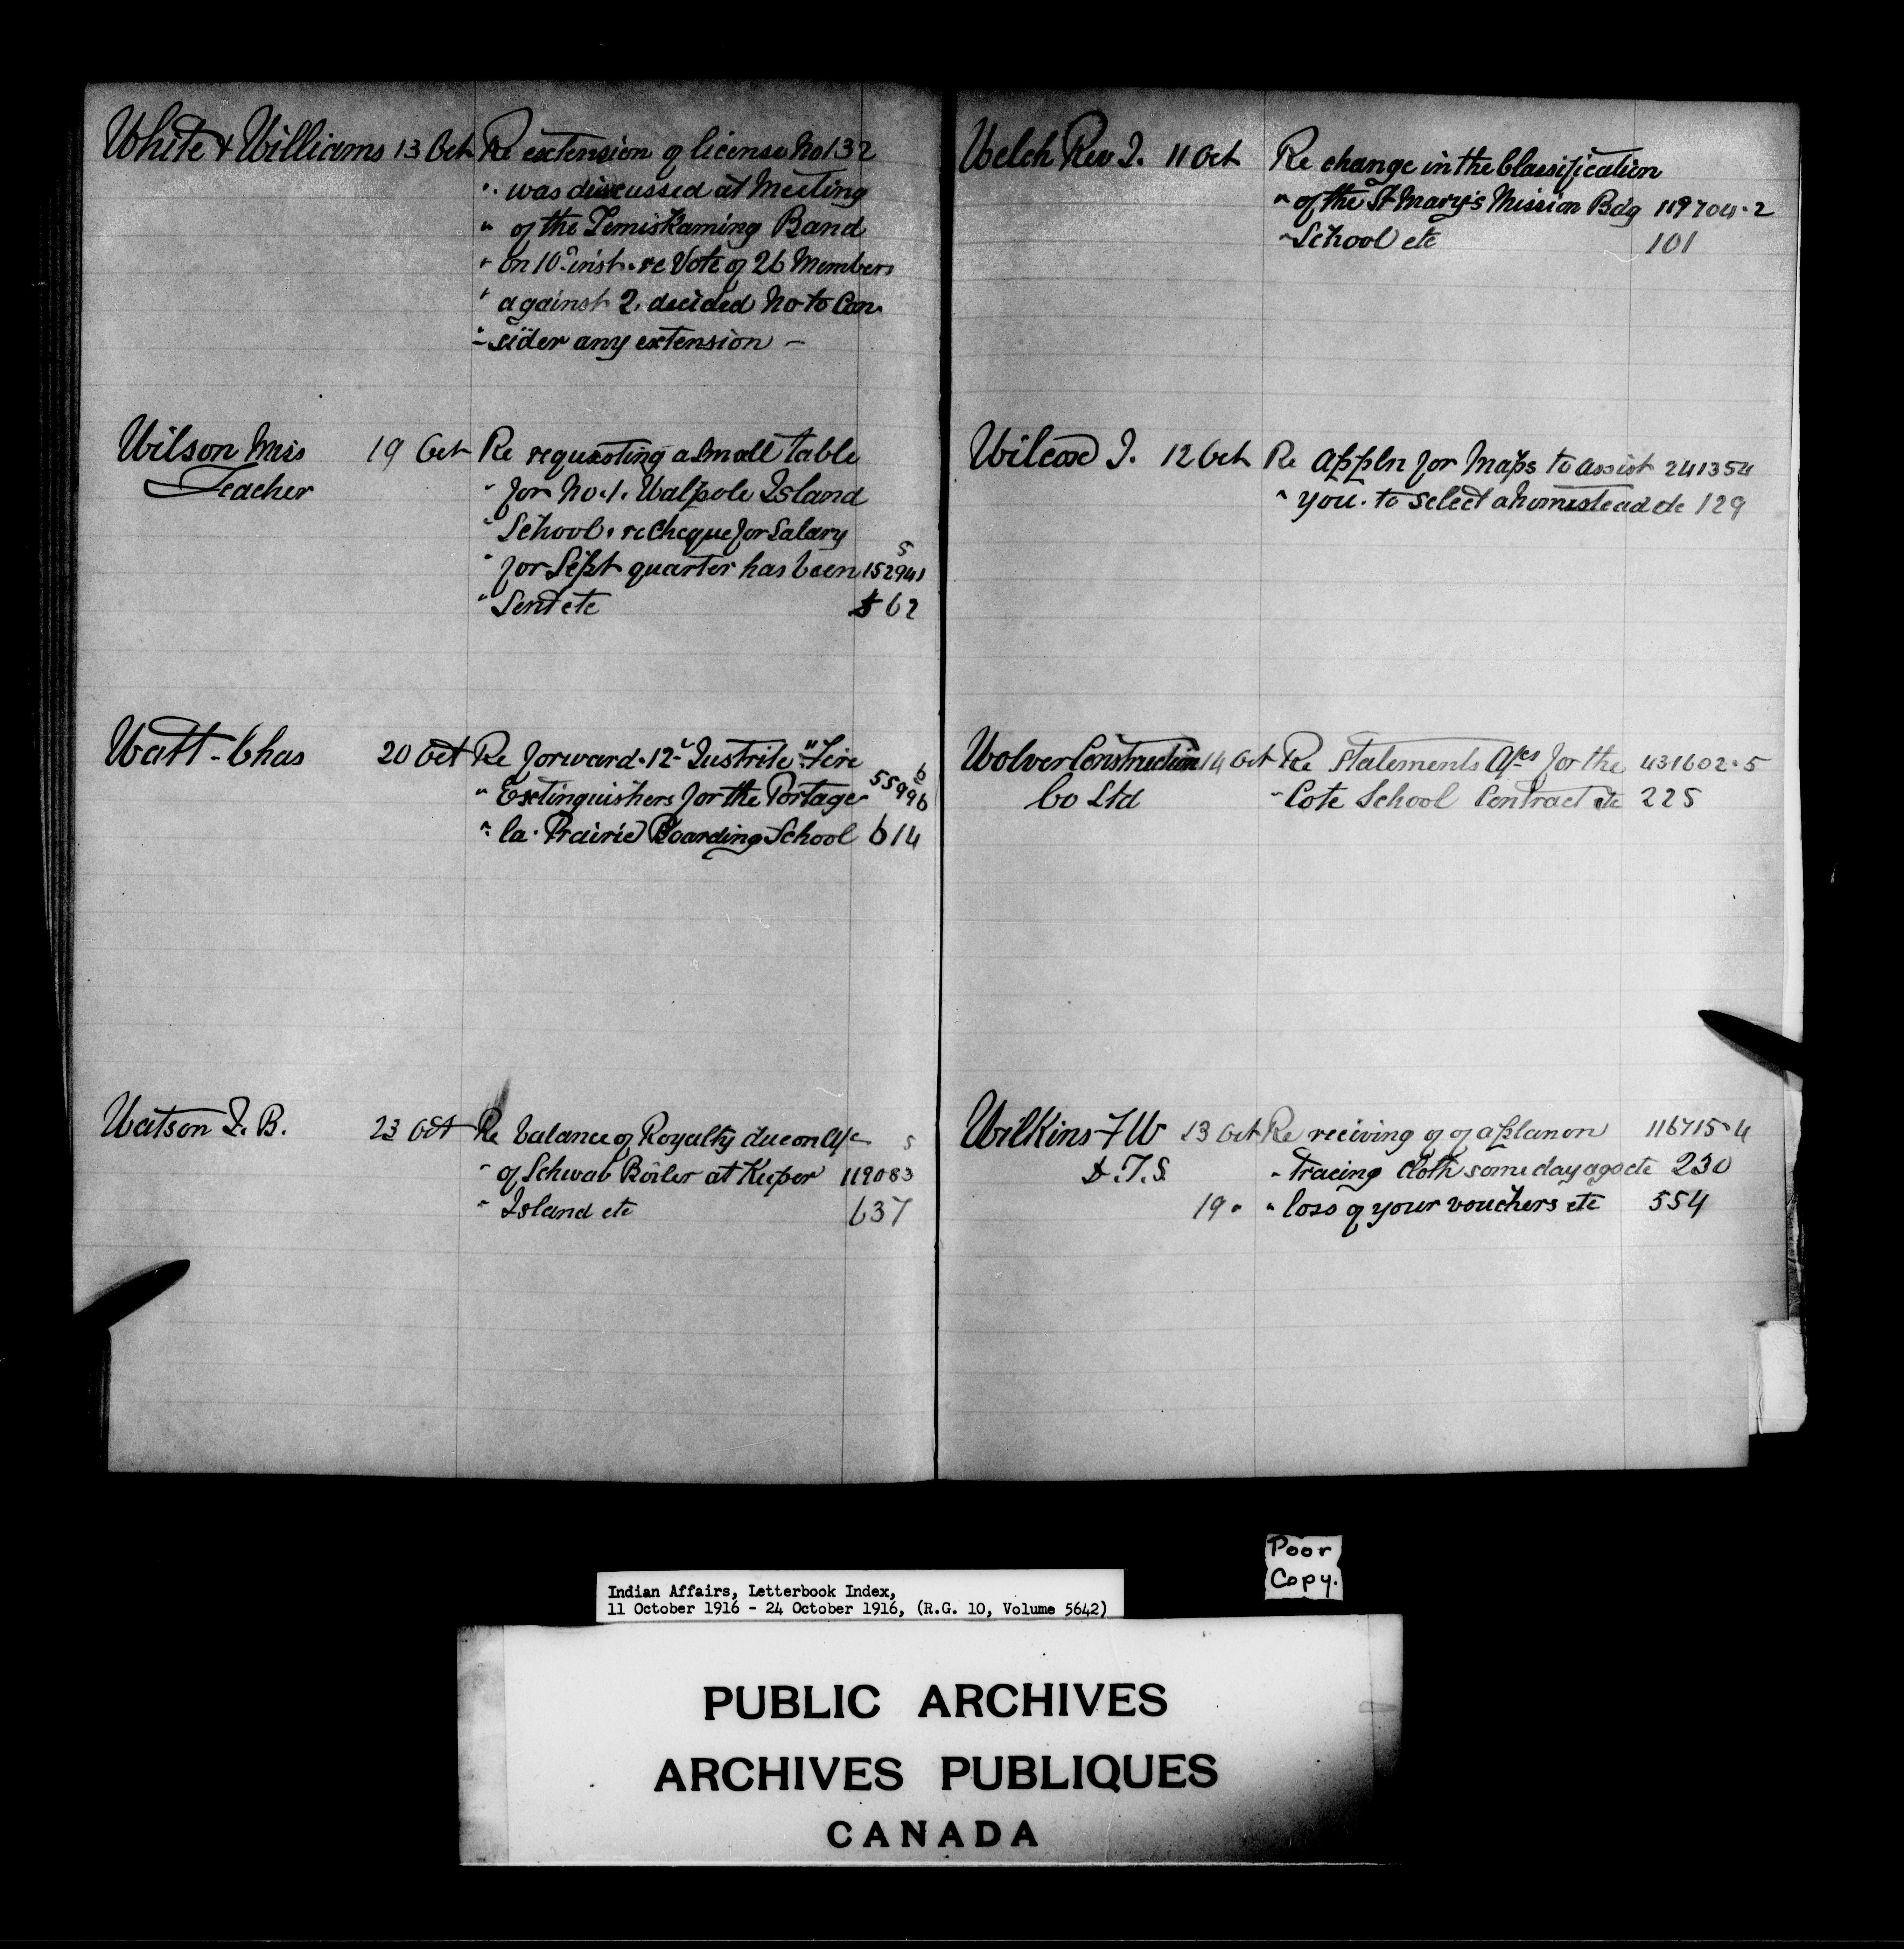 White & Williams 13 Oct Re extension of license No 132
" was discussed at Meeting
" of the Temiskaming Band
" on 10 inst. re Vote of 26 Members
" against 2. decided no to Con
" sider any extension -
Wilson Miss 19 Oct Re requesting a small table
Teacher " for No. 1. Walpole Island
" School. re Cheque for Salary
" for Sept quarter has been 152941 5
" Sent etc 562
Watt - Chas 20 Oct Re forward. 12 Justrite "Fire
" Extinguishers for the Portage 55996 6
" la. Prairie Boarding School 614
Watson J. B. 23 Oct Re balance of Royalty due on a/c 5
" of Schwab Boiler at Keeper 119083
" Island etc 637
Welch Rev J. 11 Oct Re change in the Classification
" of the St Mary's Mission Bdg 119704-2
" School etc 101
Wilcox J. 12 Oct Re Appln for Maps to assist 241354
" you. to select a homestead etc 129
Wolver Construction 14 Oct Re Statements a/cs for the 431602-5
Co Ltd " Cote School Contract etc 225
Wilkins F W 13 Oct Re reciving of of a plan on 116715-4
D.T.S. " tracing Cloth some day ago etc 230
19 " " loss of your vouchers etc 554
Poor
Copy.
Indian Affairs, Letterbook Index,
11 October 1916 - 24 October 1916, (R.G. 10, Volume 5642)
PUBLIC ARCHIVES
ARCHIVES PUBLIQUES
CANADA